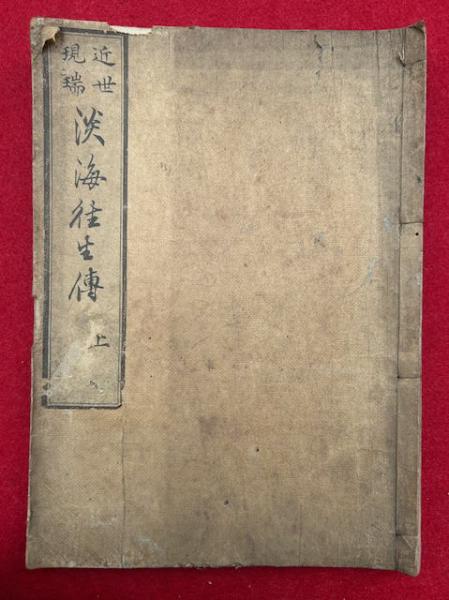 近世
現瑞
淡海往生傳
上